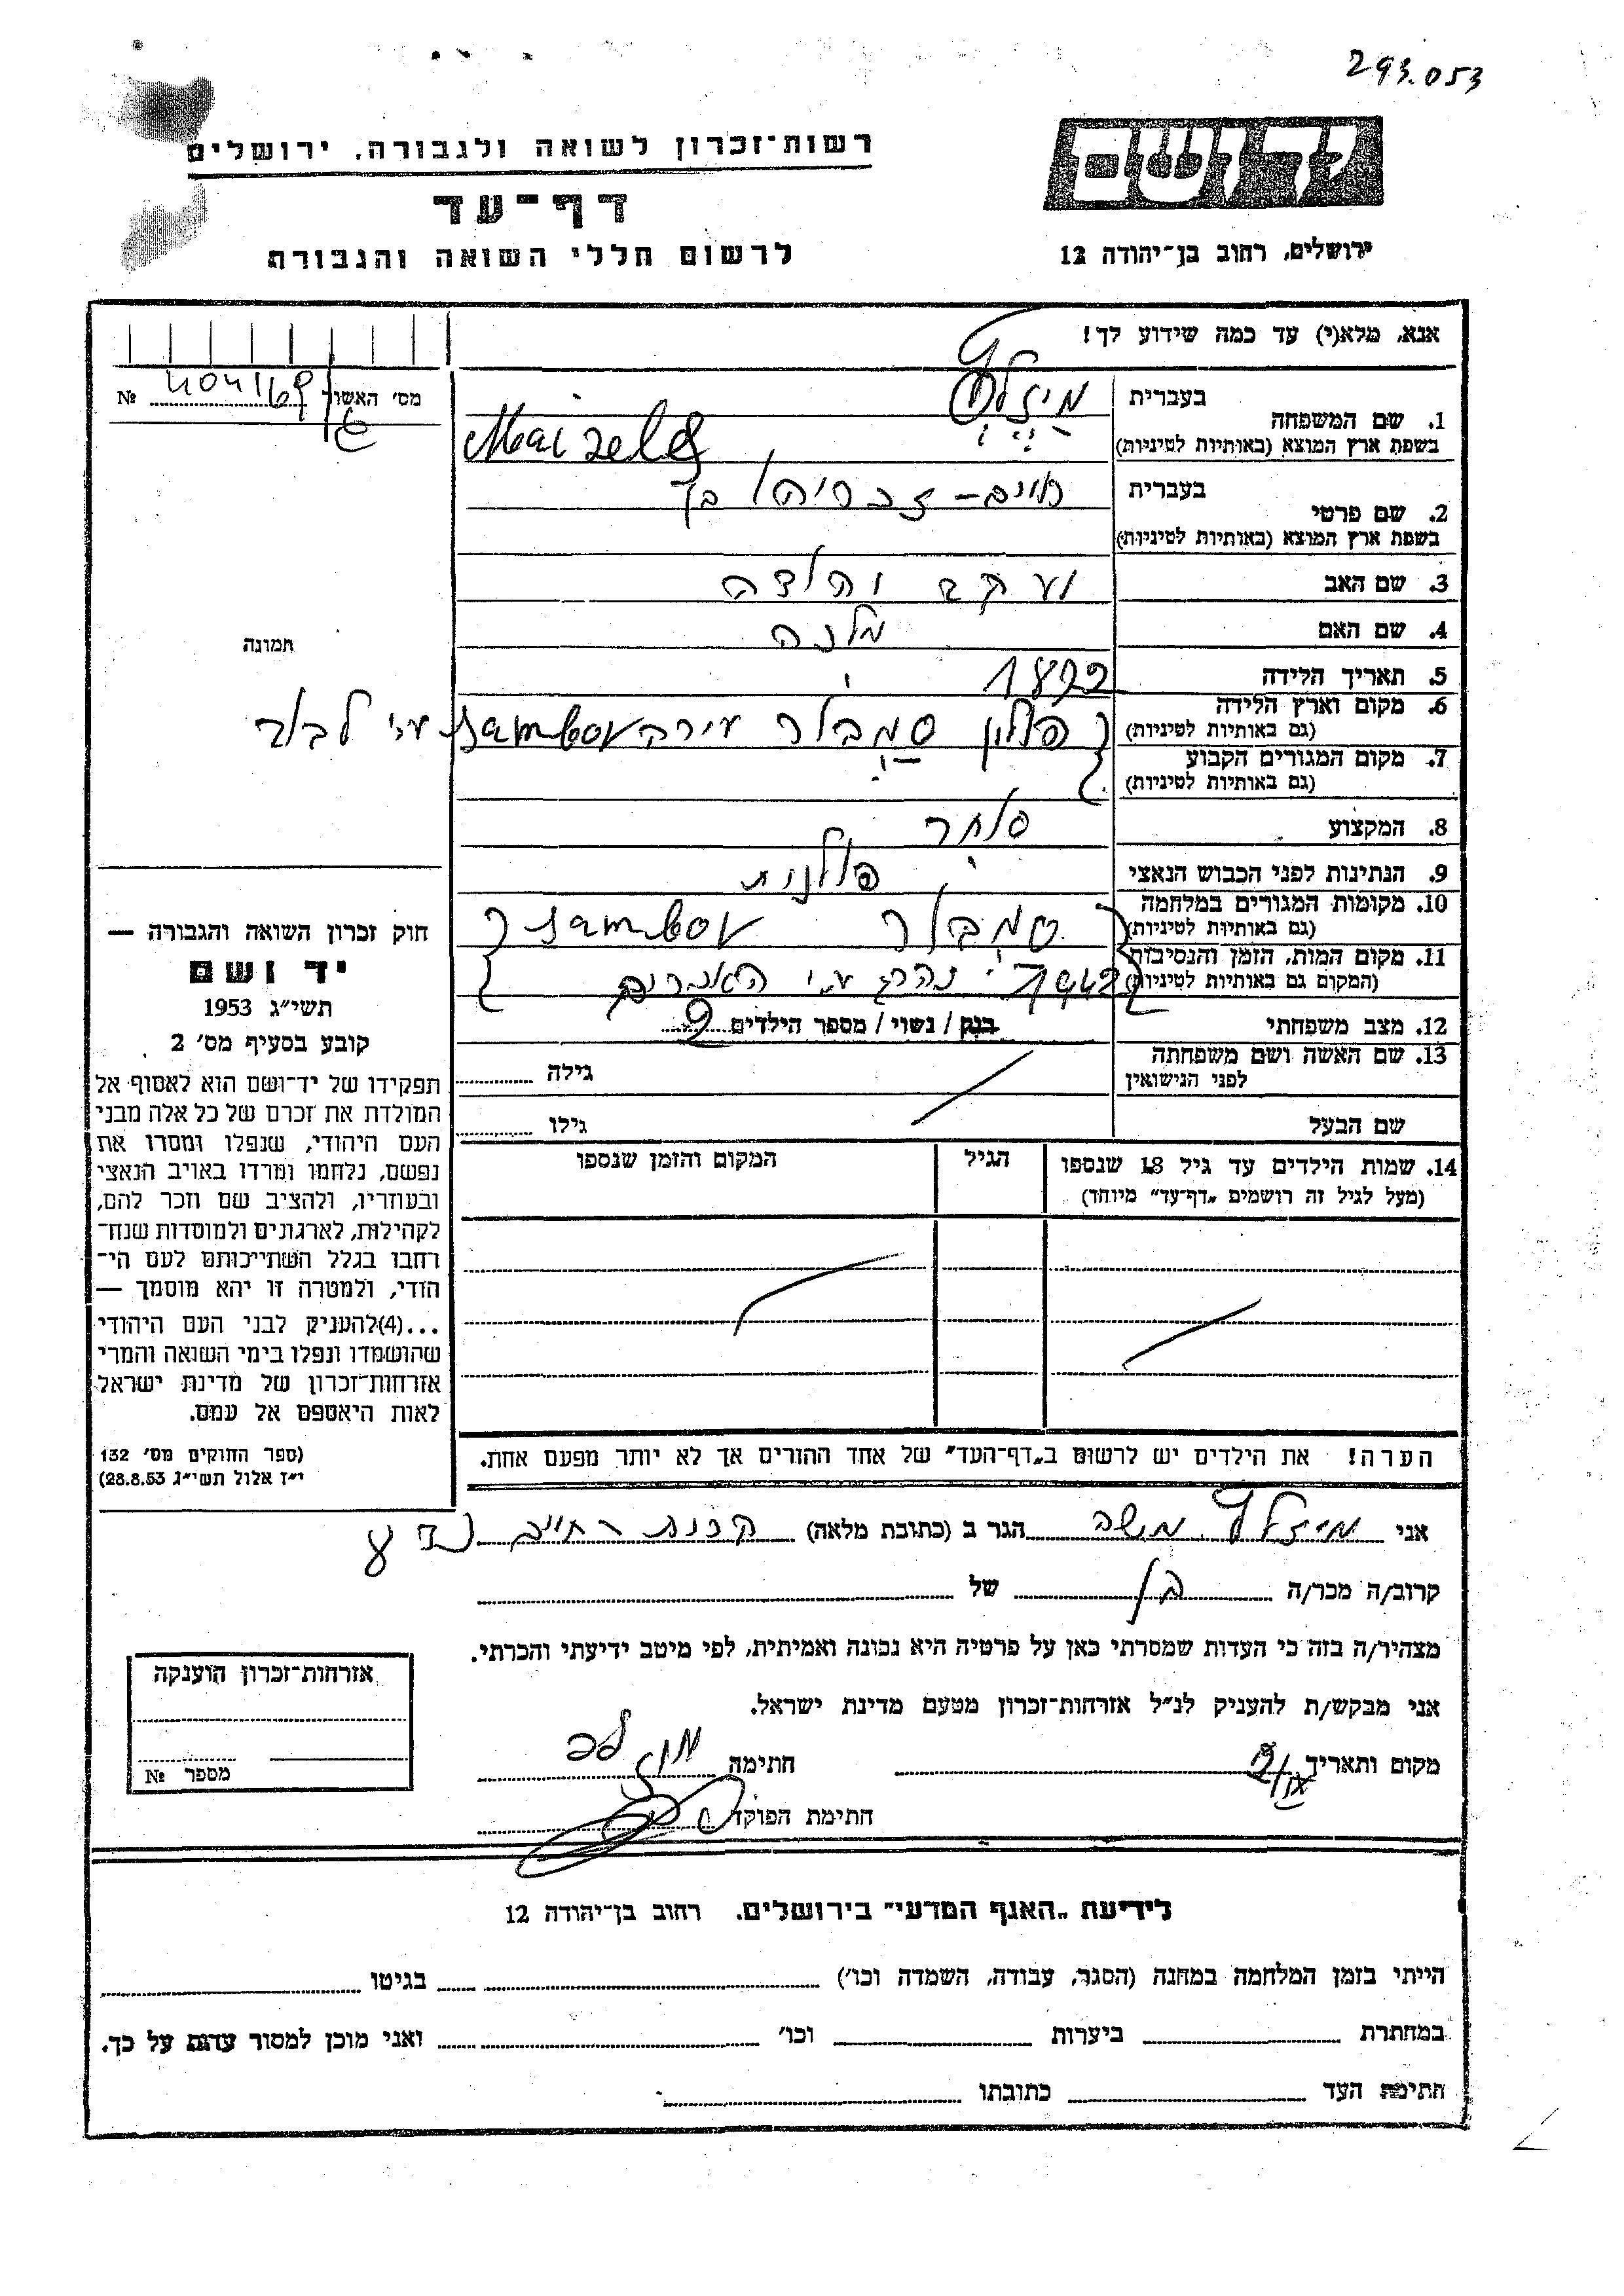 293.053
יד ושם
רשות־זכרון לשואה ולגבורה, ירושלים
דף־עד
לרשום חללי השואה והגבורה
ירושלים, רחוב בן־יהודה 12
אנא, מלא(י) עד כמה שידוע לך!
מס' האשור № 404169
1. שם המשפחה
בעברית
בשפת ארץ המוצא (באותיות לטיניות)
2. שם פרטי
בעברית זכריה
בשפת ארץ המוצא (באותיות לטיניות)
3. שם האב יעקב יהודה
4. שם האם מלכה
5. תאריך הלידה
6. מקום וארץ הלידה
(גם באותיות לטיניות) פולין סמבור Sambor
7. מקום המגורים הקבוע
(גם באותיות לטיניות)
8. המקצוע סוחר
9. הנתינות לפני הכבוש הנאצי פולנית
10. מקומות המגורים במלחמה
(גם באותיות לטיניות) סמבור Sambor
11. מקום המות, הזמן והנסיבות
(המקום גם באותיות לטיניות) 1942 נהרג ע"י
12. מצב משפחתי רווק / נשוי / מספר הילדים 2
13. שם האשה ושם משפחתה
לפני הנישואין
גילה
שם הבעל
גילו
14. שמות הילדים עד גיל 18 שנספו
(מעל לגיל זה רושמים „דף־עד" מיוחד)
הגיל
המקום והזמן שנספו
הערה! את הילדים יש לרשום ב„דף־העד" של אחד ההורים אך לא יותר מפעם אחת.
תמונה
חוק זכרון השואה והגבורה —
יד ושם
תשי"ג 1953
קובע בסעיף מס' 2
תפקידו של יד־ושם הוא לאסוף אל
המולדת את זכרם של כל אלה מבני
העם היהודי, שנפלו ומסרו את
נפשם, נלחמו ומרדו באויב הנאצי
ובעוזריו, ולהציב שם וזכר להם,
לקהילות, לארגונים ולמוסדות שנח־
רחבו בגלל השתייכותם לעם הי־
הודי, ולמטרה זו יהא מוסמך —
...(4)להעניק לבני העם היהודי
שהושמדו ונפלו בימי השואה והמרי
אזרחות־זכרון של מדינת ישראל
לאות היאספם אל עמם.
(ספר החוקים מס' 132
י"ז אלול תשי"ג 28.8.53)
אני משה הגר ב (כתובת מלאה) קרית חיים
קרוב/ה מכר/ה בן של
מצהיר/ה בזה כי העדות שמסרתי כאן על פרטיה היא נכונה ואמיתית, לפי מיטב ידיעתי והכרתי.
אני מבקש/ת להעניק לנ"ל אזרחות־זכרון מטעם מדינת ישראל.
מקום ותאריך
חתימה
חתימת הפוקד
אזרחות־זכרון הוענקה
מספר №
לידיעת „האגף המדעי" בירושלים. רחוב בן־יהודה 12
הייתי בזמן המלחמה במחנה (הסגר, עבודה, השמדה וכו') בגיטו
במחתרת ביערות וכו' ואני מוכן למסור עדות על כך.
חתימת העד כתובתו